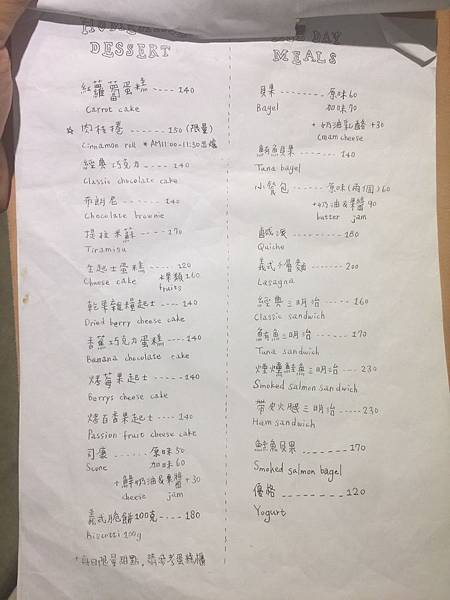 DESSERT
紅蘿蔔蛋糕 ---- 140
Carrot cake
☆ 肉桂捲 ------ 150 (限量)
Cinnamon roll * AM11:00-11:30出爐
經典巧克力 ---- 140
Classic chocolate cake
布朗尼 ------ 140
Chocolate brownie
提拉米蘇 ---- 170
Tiramisu
生起士蛋糕 ---- 120
Cheese cake +果類160
fruits
乾果雜糧起士 ---- 140
Dried berry cheese cake
香蕉巧克力蛋糕 ---- 140
Banana chocolate cake
烤莓果起士 ------ 140
Berrys cheese cake
烤百香果起士 ---- 140
Passion fruit cheese cake
司康 ------ 原味50
Scone 加味60
+鮮奶油&果醬 +30
cheese jam
義式脆餅100克 --- 180
Biscotti 100g
*每日限量甜點,請參考蛋糕櫃
DAY
MEALS
貝果 ------ 原味60
Bagel 加味70
+奶油乳酪 +30
cream cheese
鮪魚貝果 ------ 140
Tuna bagel
小餐包 ------ 原味(兩個)60
+奶油&果醬 90
butter jam
鹹派 ------ 180
Quiche
義式千層麵 ------ 200
Lasagna
經典三明治 ---- 160
Classic sandwich
鮪魚三明治 ---- 170
Tuna sandwich
煙燻鮭魚三明治 --- 230
Smoked salmon sandwich
帶皮火腿三明治 ---- 230
Ham sandwich
鮭魚貝果 ------ 170
Smoked salmon bagel
優格 ------ 120
Yogurt